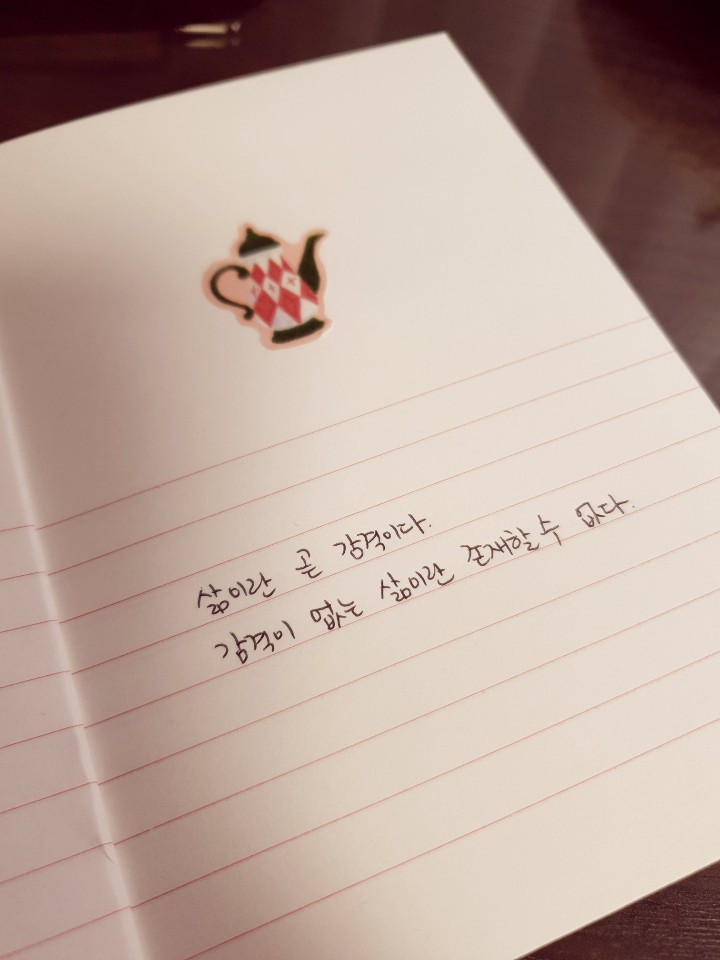 삶이란 곧 감격이다.
감격이 없는 삶이란 존재할 수 없다.